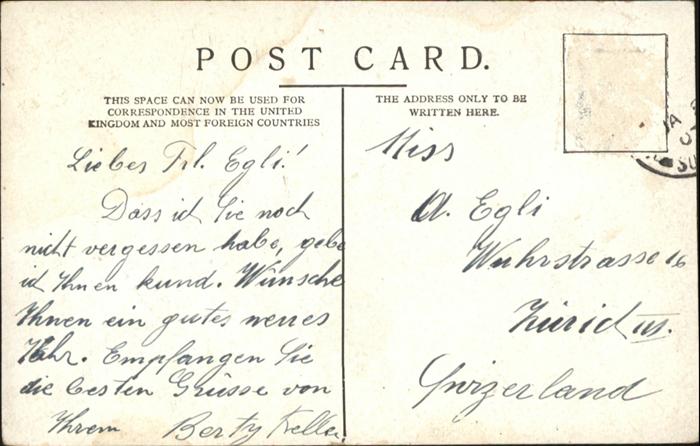 POST CARD.
THIS SPACE CAN NOW BE USED FOR
CORRESPONDENCE IN THE UNITED
KINGDOM AND MOST FOREIGN COUNTRIES
Liebes Frl. Egli!
Dass ich Sie noch
nicht vergessen habe, gebe
ich Ihnen kund. Wünsche
Ihnen ein gutes neues
Jahr. Empfangen Sie
die besten Grüsse von
Ihrem Berty Keller
THE ADDRESS ONLY TO BE
WRITTEN HERE.
Miss
A. Egli
Wuhrstrasse 16
Zürich III.
Swizerland